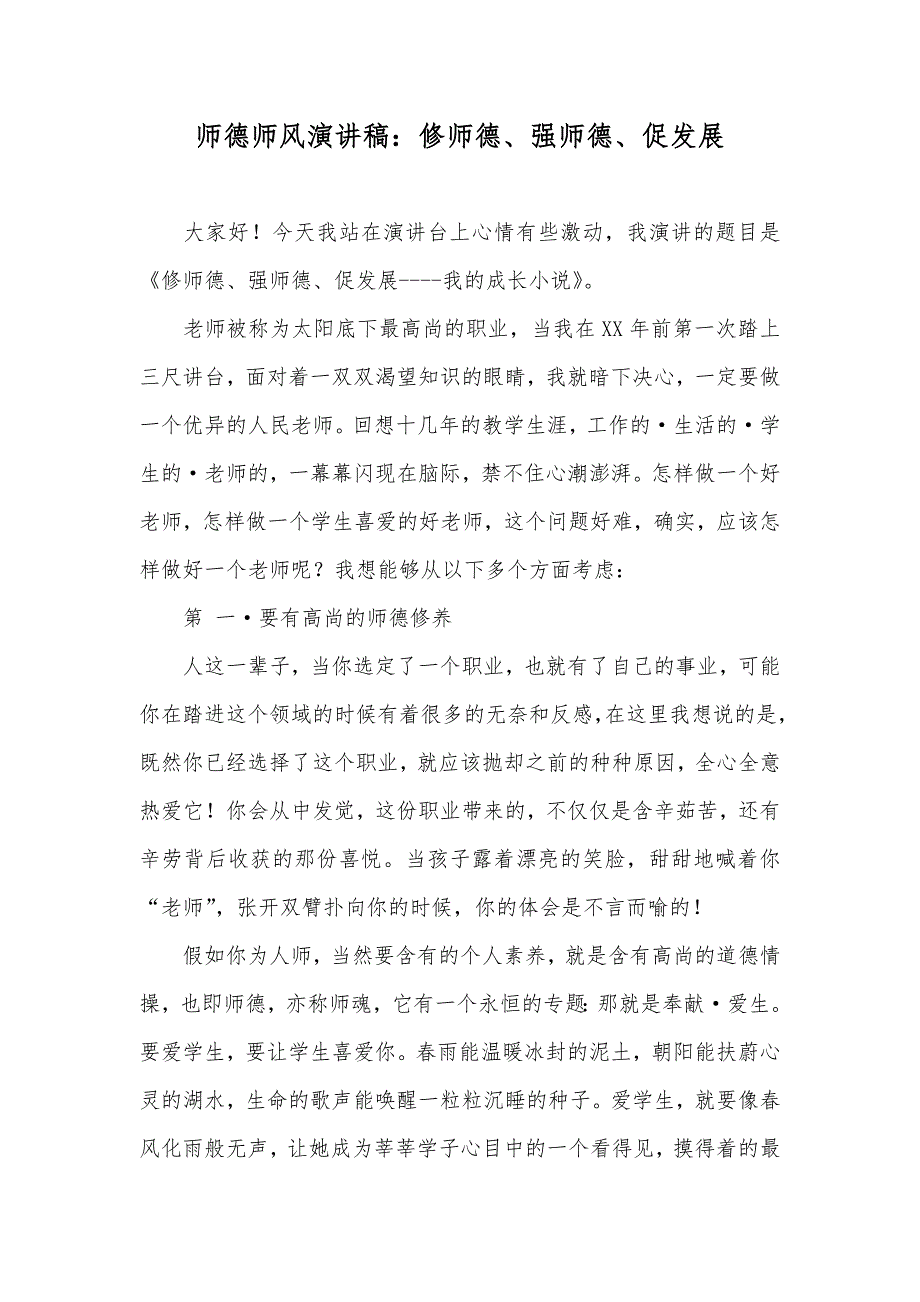 师德师风演讲稿：修师德、强师德、促发展
大家好！今天我站在演讲台上心情有些激动，我演讲的题目是
《修师德、强师德、促发展----我的成长小说》。
老师被称为太阳底下最高尚的职业，当我在 XX 年前第一次踏上
三尺讲台，面对着一双双渴望知识的眼睛，我就暗下决心，一定要做
一个优异的人民老师。回想十几年的教学生涯，工作的·生活的·学
生的·老师的，一幕幕闪现在脑际，禁不住心潮澎湃。怎样做一个好
老师，怎样做一个学生喜爱的好老师，这个问题好难，确实，应该怎
样做好一个老师呢？我想能够从以下多个方面考虑：
第 一·要有高尚的师德修养
人这一辈子，当你选定了一个职业，也就有了自己的事业，可能
你在踏进这个领域的时候有着很多的无奈和反感，在这里我想说的是，
既然你已经选择了这个职业，就应该抛却之前的种种原因，全心全意
热爱它！你会从中发觉，这份职业带来的，不仅仅是含辛茹苦，还有
辛劳背后收获的那份喜悦。当孩子露着漂亮的笑脸，甜甜地喊着你
“老师”，张开双臂扑向你的时候，你的体会是不言而喻的！
假如你为人师，当然要含有的个人素养，就是含有高尚的道德情
操，也即师德，亦称师魂，它有一个永恒的专题：那就是奉献·爱生。
要爱学生，要让学生喜爱你。春雨能温暖冰封的泥土，朝阳能扶蔚心
灵的湖水，生命的歌声能唤醒一粒粒沉睡的种子。爱学生，就要像春
风化雨般无声，让她成为莘莘学子心目中的一个看得见，摸得着的最